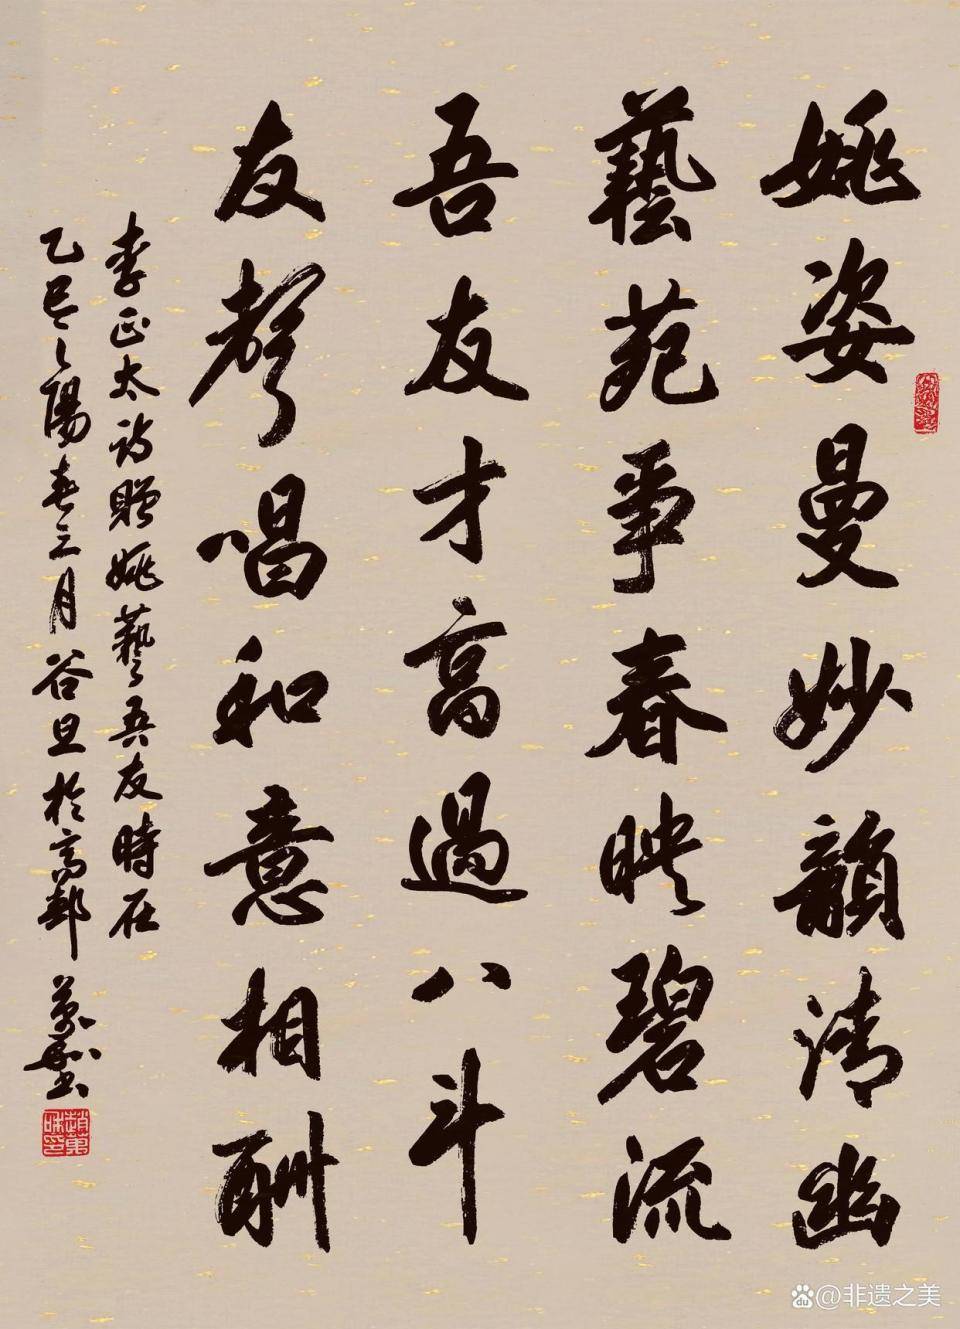 姚姿曼妙韻清幽
藝苑事春映碧流
吾友才高過八斗
友聲唱和意相酬
李正太詩贈姚藝吾友時在
乙巳之陽春三月谷旦於高郵
萬和書
趙萬和印
@非遗之美